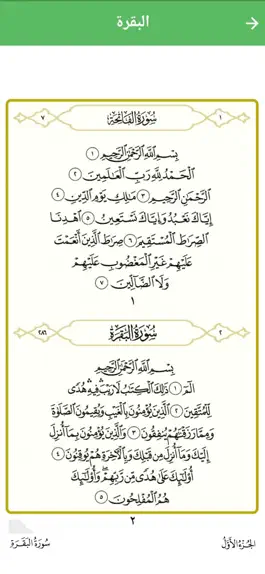 البقرة
١ سُورَةُ الفَاتِحَةِ ٧
بِسْمِ اللَّهِ الرَّحْمَٰنِ الرَّحِيمِ ١
الْحَمْدُ لِلَّهِ رَبِّ الْعَالَمِينَ ٢
الرَّحْمَٰنِ الرَّحِيمِ ٣ مَالِكِ يَوْمِ الدِّينِ ٤
إِيَّاكَ نَعْبُدُ وَإِيَّاكَ نَسْتَعِينُ ٥ اهْدِنَا
الصِّرَاطَ الْمُسْتَقِيمَ ٦ صِرَاطَ الَّذِينَ أَنْعَمْتَ
عَلَيْهِمْ غَيْرِ الْمَغْضُوبِ عَلَيْهِمْ
وَلَا الضَّالِّينَ ٧
١
٢ سُورَةُ البَقَرَةِ ٢٨٦
بِسْمِ اللَّهِ الرَّحْمَٰنِ الرَّحِيمِ
الم ١ ذَٰلِكَ الْكِتَابُ لَا رَيْبَ ۛ فِيهِ ۛ هُدًى
لِلْمُتَّقِينَ ٢ الَّذِينَ يُؤْمِنُونَ بِالْغَيْبِ وَيُقِيمُونَ الصَّلَاةَ
وَمِمَّا رَزَقْنَاهُمْ يُنْفِقُونَ ٣ وَالَّذِينَ يُؤْمِنُونَ بِمَا أُنْزِلَ
إِلَيْكَ وَمَا أُنْزِلَ مِنْ قَبْلِكَ وَبِالْآخِرَةِ هُمْ يُوقِنُونَ ٤
أُولَٰئِكَ عَلَىٰ هُدًى مِنْ رَبِّهِمْ ۖ وَأُولَٰئِكَ
هُمُ الْمُفْلِحُونَ ٥
٢
الجُزءُ الأَوَّلُ
سُورَةُ البَقَرَةِ